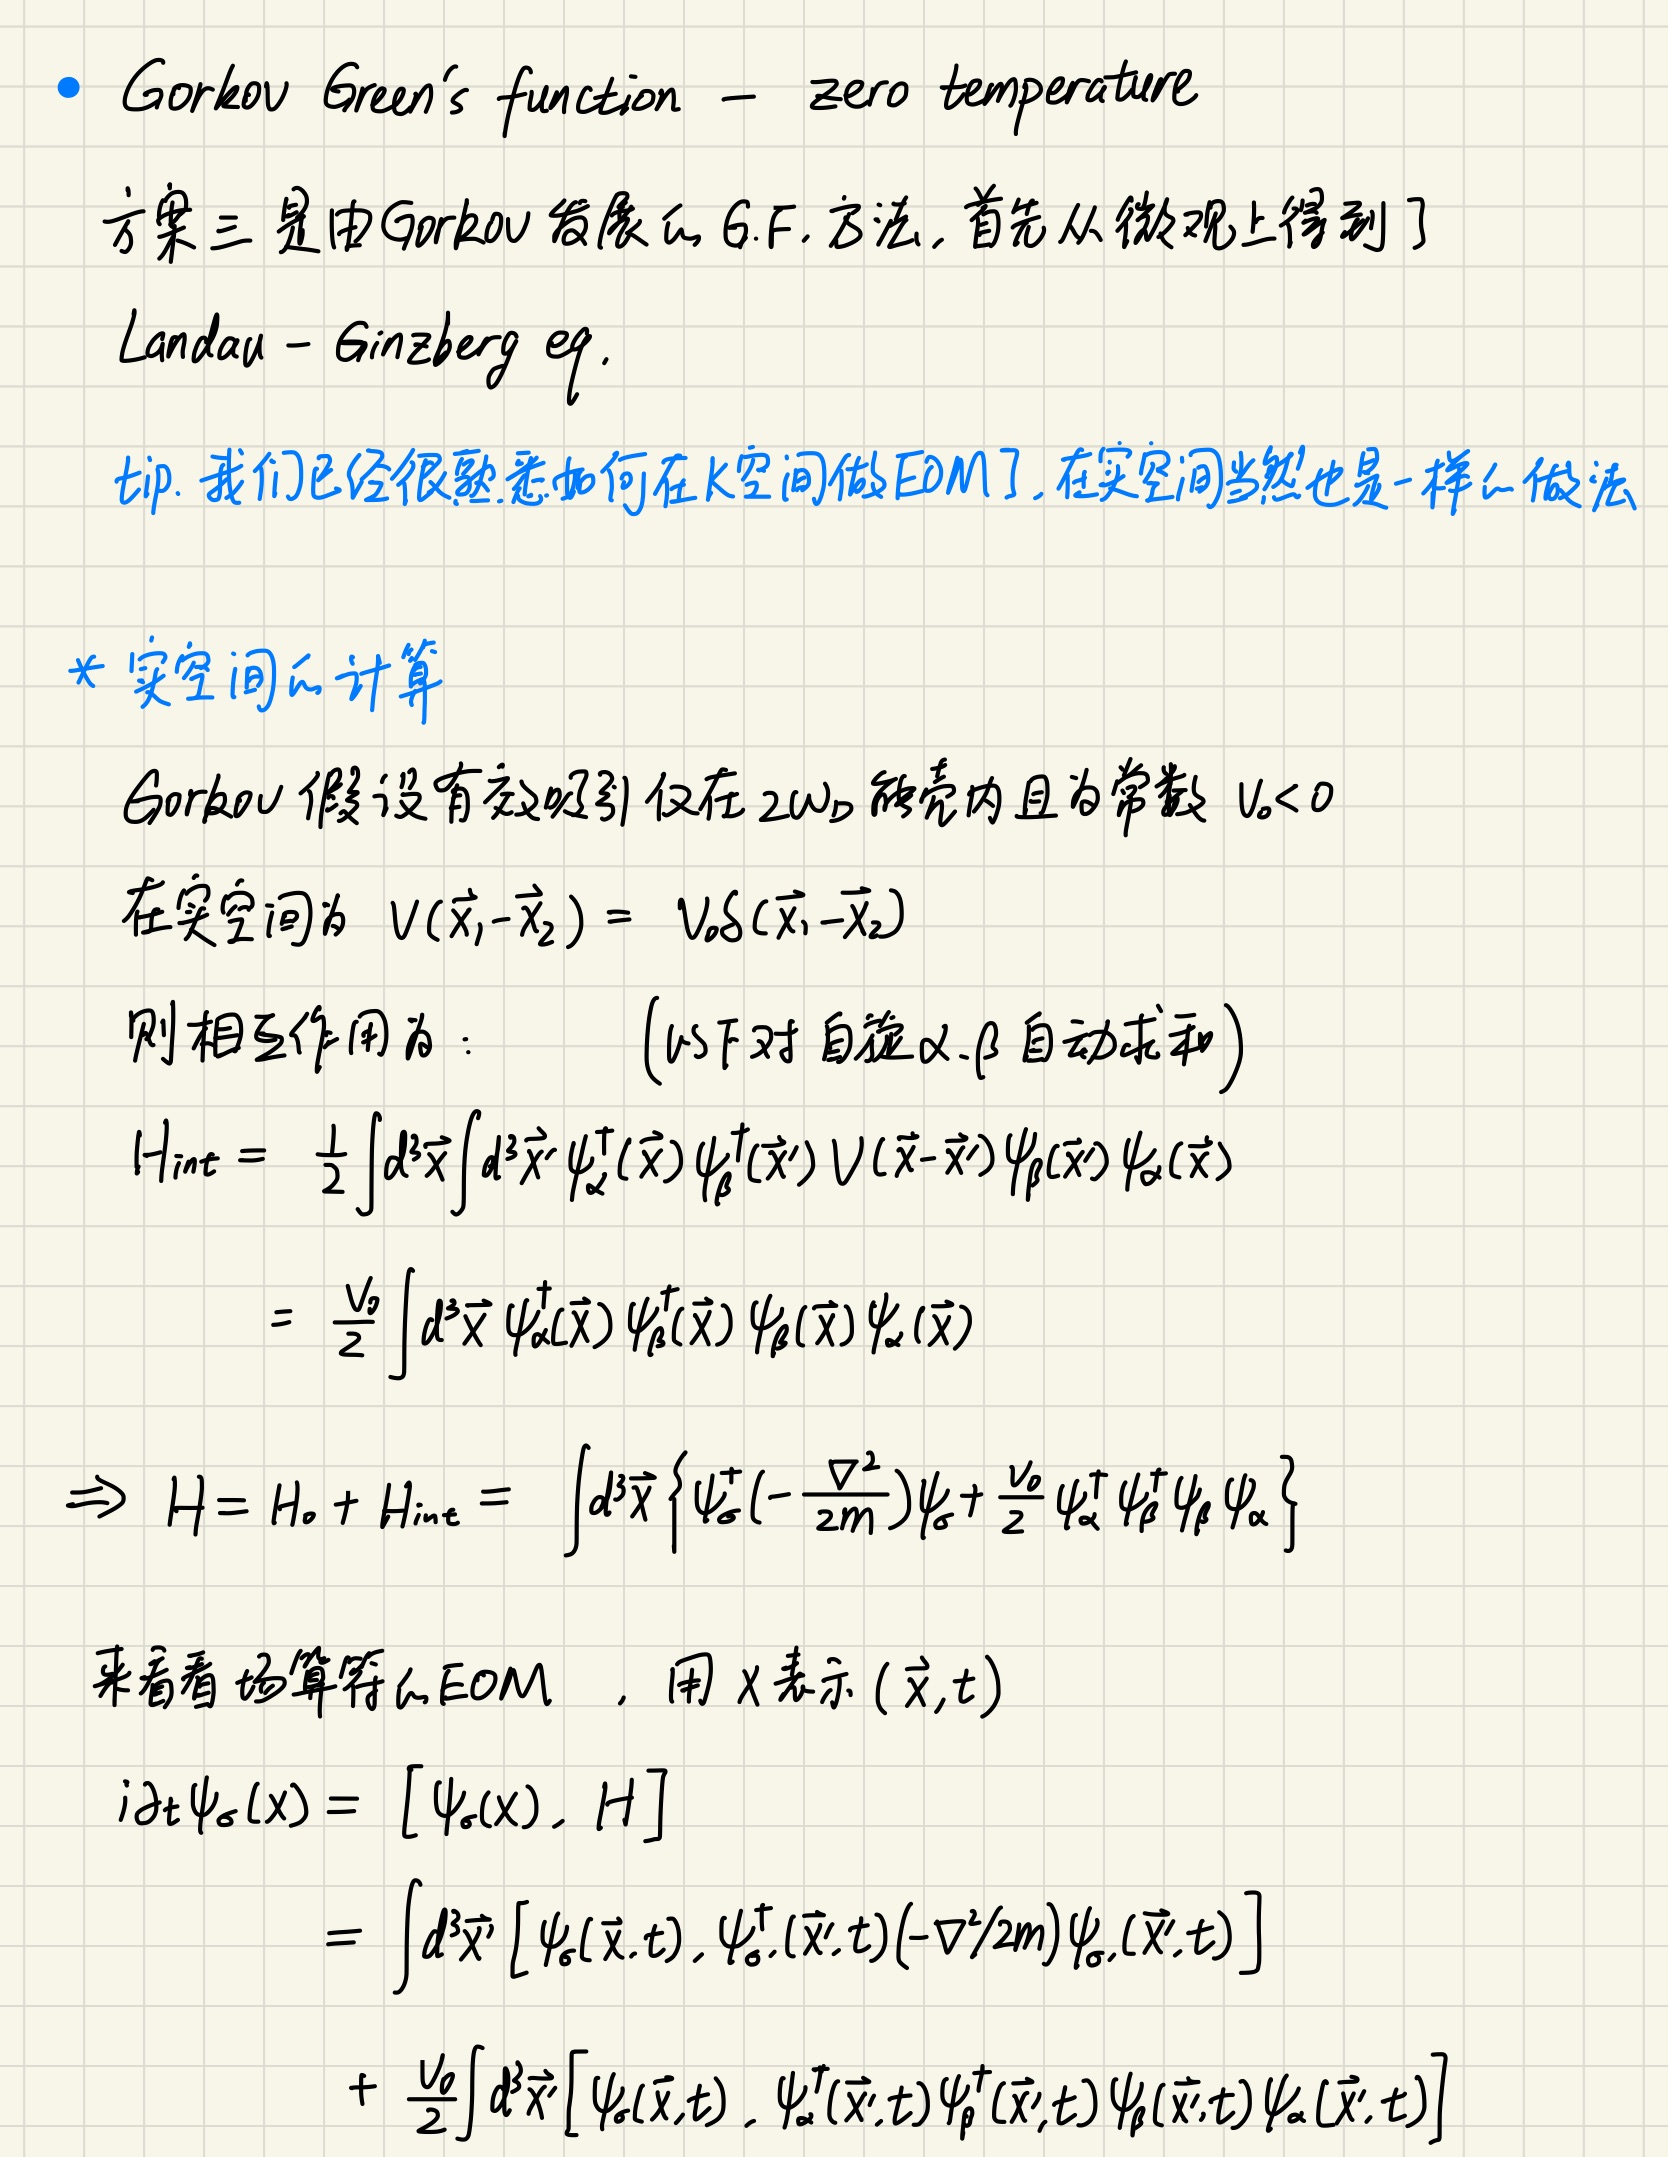 • Gorkov Green's function — zero temperature
方案三是由Gorkov发展的G.F.方法,首先从微观上得到了
Landau - Ginzberg eq.
tip. 我们已经很熟悉如何在K空间做EOM了,在实空间当然也是一样的做法
* 实空间的计算
Gorkov 假设有效吸引仅在 2ω_D 能壳内且为常数 V₀<0
在实空间为 V(x⃗₁-x⃗₂) = V₀δ(x⃗₁-x⃗₂)
则相互作用为: (以下对自旋α、β自动求和)
H_int = 1/2 ∫d³x⃗ ∫d³x⃗′ ψ_α†(x⃗) ψ_β†(x⃗′) V(x⃗-x⃗′) ψ_β(x⃗′) ψ_α(x⃗)
= V₀/2 ∫d³x⃗ ψ_α†(x⃗) ψ_β†(x⃗) ψ_β(x⃗) ψ_α(x⃗)
⇒ H = H₀ + H_int = ∫d³x⃗ {ψ_σ†(-∇²/2m)ψ_σ + V₀/2 ψ_α† ψ_β† ψ_β ψ_α}
来看看场算符的EOM , 用 x 表示 (x⃗,t)
i∂_tψ_σ(x) = [ψ_σ(x), H]
= ∫d³x⃗′ [ψ_σ(x⃗,t), ψ_σ′†(x⃗′,t)(-∇²/2m)ψ_σ′(x⃗′,t)]
+ V₀/2 ∫d³x⃗′ [ψ_σ(x⃗,t), ψ_α†(x⃗′,t) ψ_β†(x⃗′,t) ψ_β(x⃗′,t) ψ_α(x⃗′,t)]